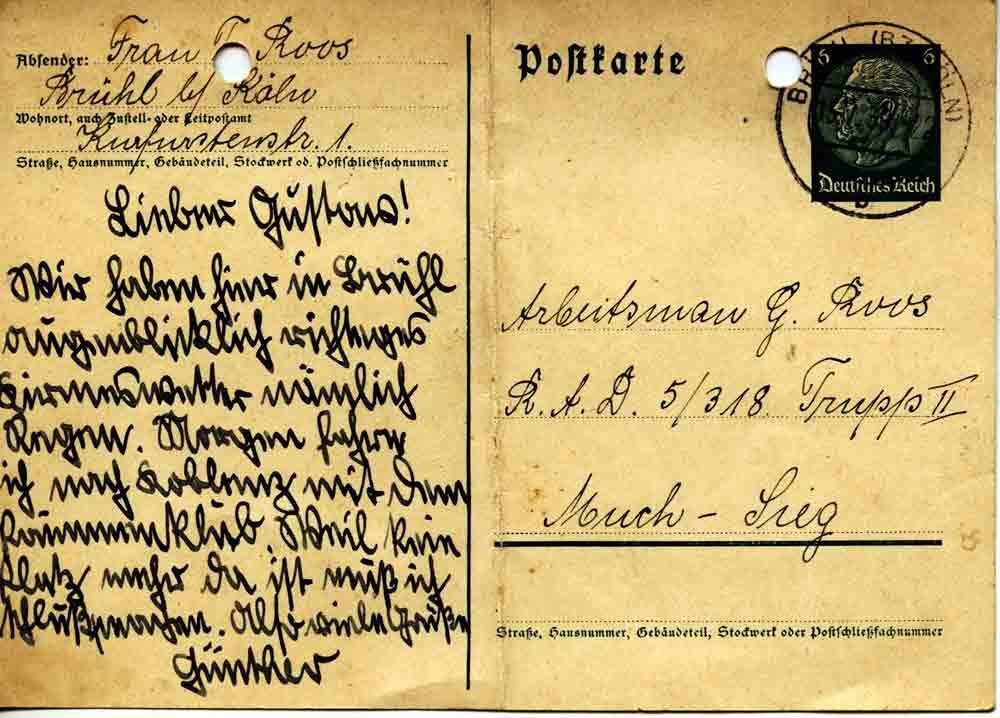 Absender: Frau T. Roos
Brühl b/ Köln
Wohnort, auch Zustell- oder Leitpostamt
Kurfürstenstr. 1.
Straße, Hausnummer, Gebäudeteil, Stockwerk od. Postschließfachnummer
Lieber Gustav!
Wir haben hier in Brühl
augenblicklich richtiges
Kirmeswetter nämlich
Regen. Morgen fahre
ich nach Koblenz mit dem
Weil kein
Platz mehr da ist muß ich
schlußmachen. Also viele Grüße
Günther
Postkarte
6 6
Deutsches Reich
BRÜHL (BZ KÖLN)
b
Arbeitsman G. Roos
R. A. D. 5/318 Trupp II
Much - Sieg
Straße, Hausnummer, Gebäudeteil, Stockwerk oder Postschließfachnummer